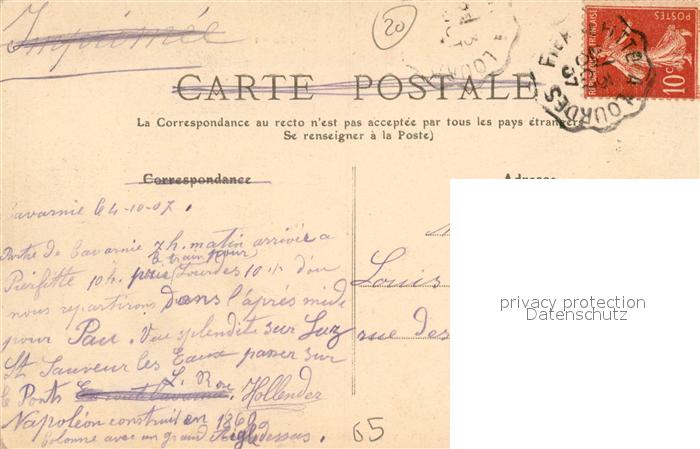 Imprimée
20
CARTE POSTALE
La Correspondance au recto n'est pas acceptée par tous les pays étrangers
Se renseigner à la Poste)
POSTES
10c
LOURDES
07
Correspondance
Adresse
Gavarnie le 4-10-07.
Partie de Gavarnie 7h. matin arrivée a
le train pour
Pierfitte 10h. pour Lourdes 10 d'où
nous repartirons dans l'après midi
pour Pau. Vue splendide sur Luz
St Sauveur les Eaux passer sur
le Ponts
L. Rose
Hollender
Napoléon construit en 1860
Colonne avec un grand Aigle dessus.
65
Louis
rue des
privacy protection
Datenschutz